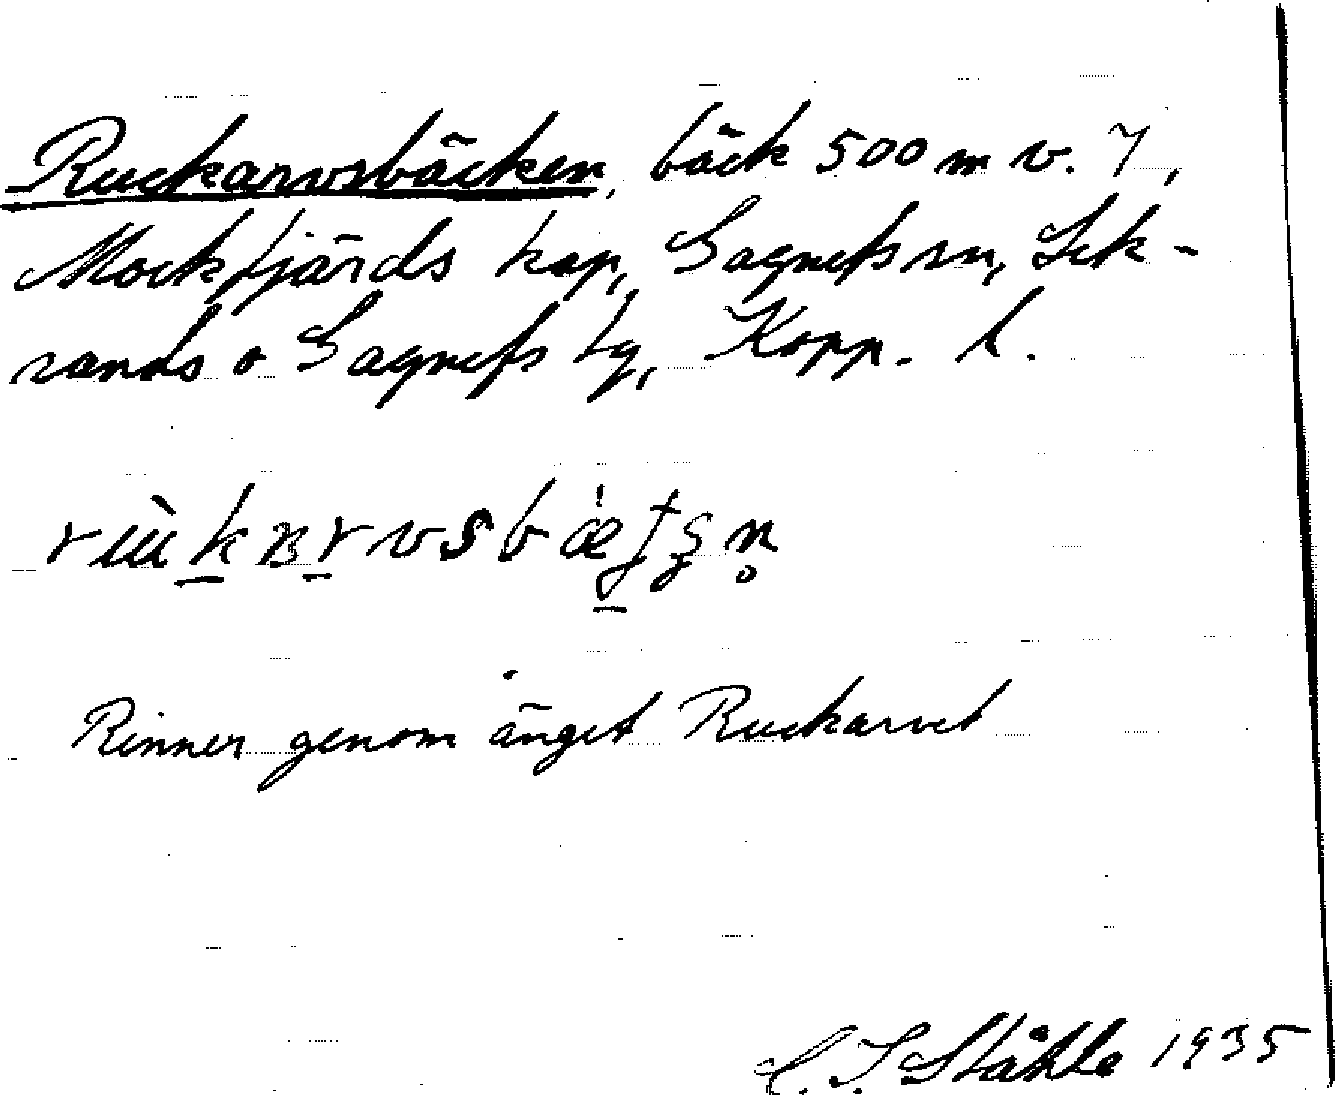 Ruckarvsbäcken, bäck 500 m v. 7,
Mockfjärds kap, Gagnefs sn, Lek-
sands o Gagnefs tg, Kopp. l.
Rinner genom änget Ruckarvet
C. I. Ståhle 1935